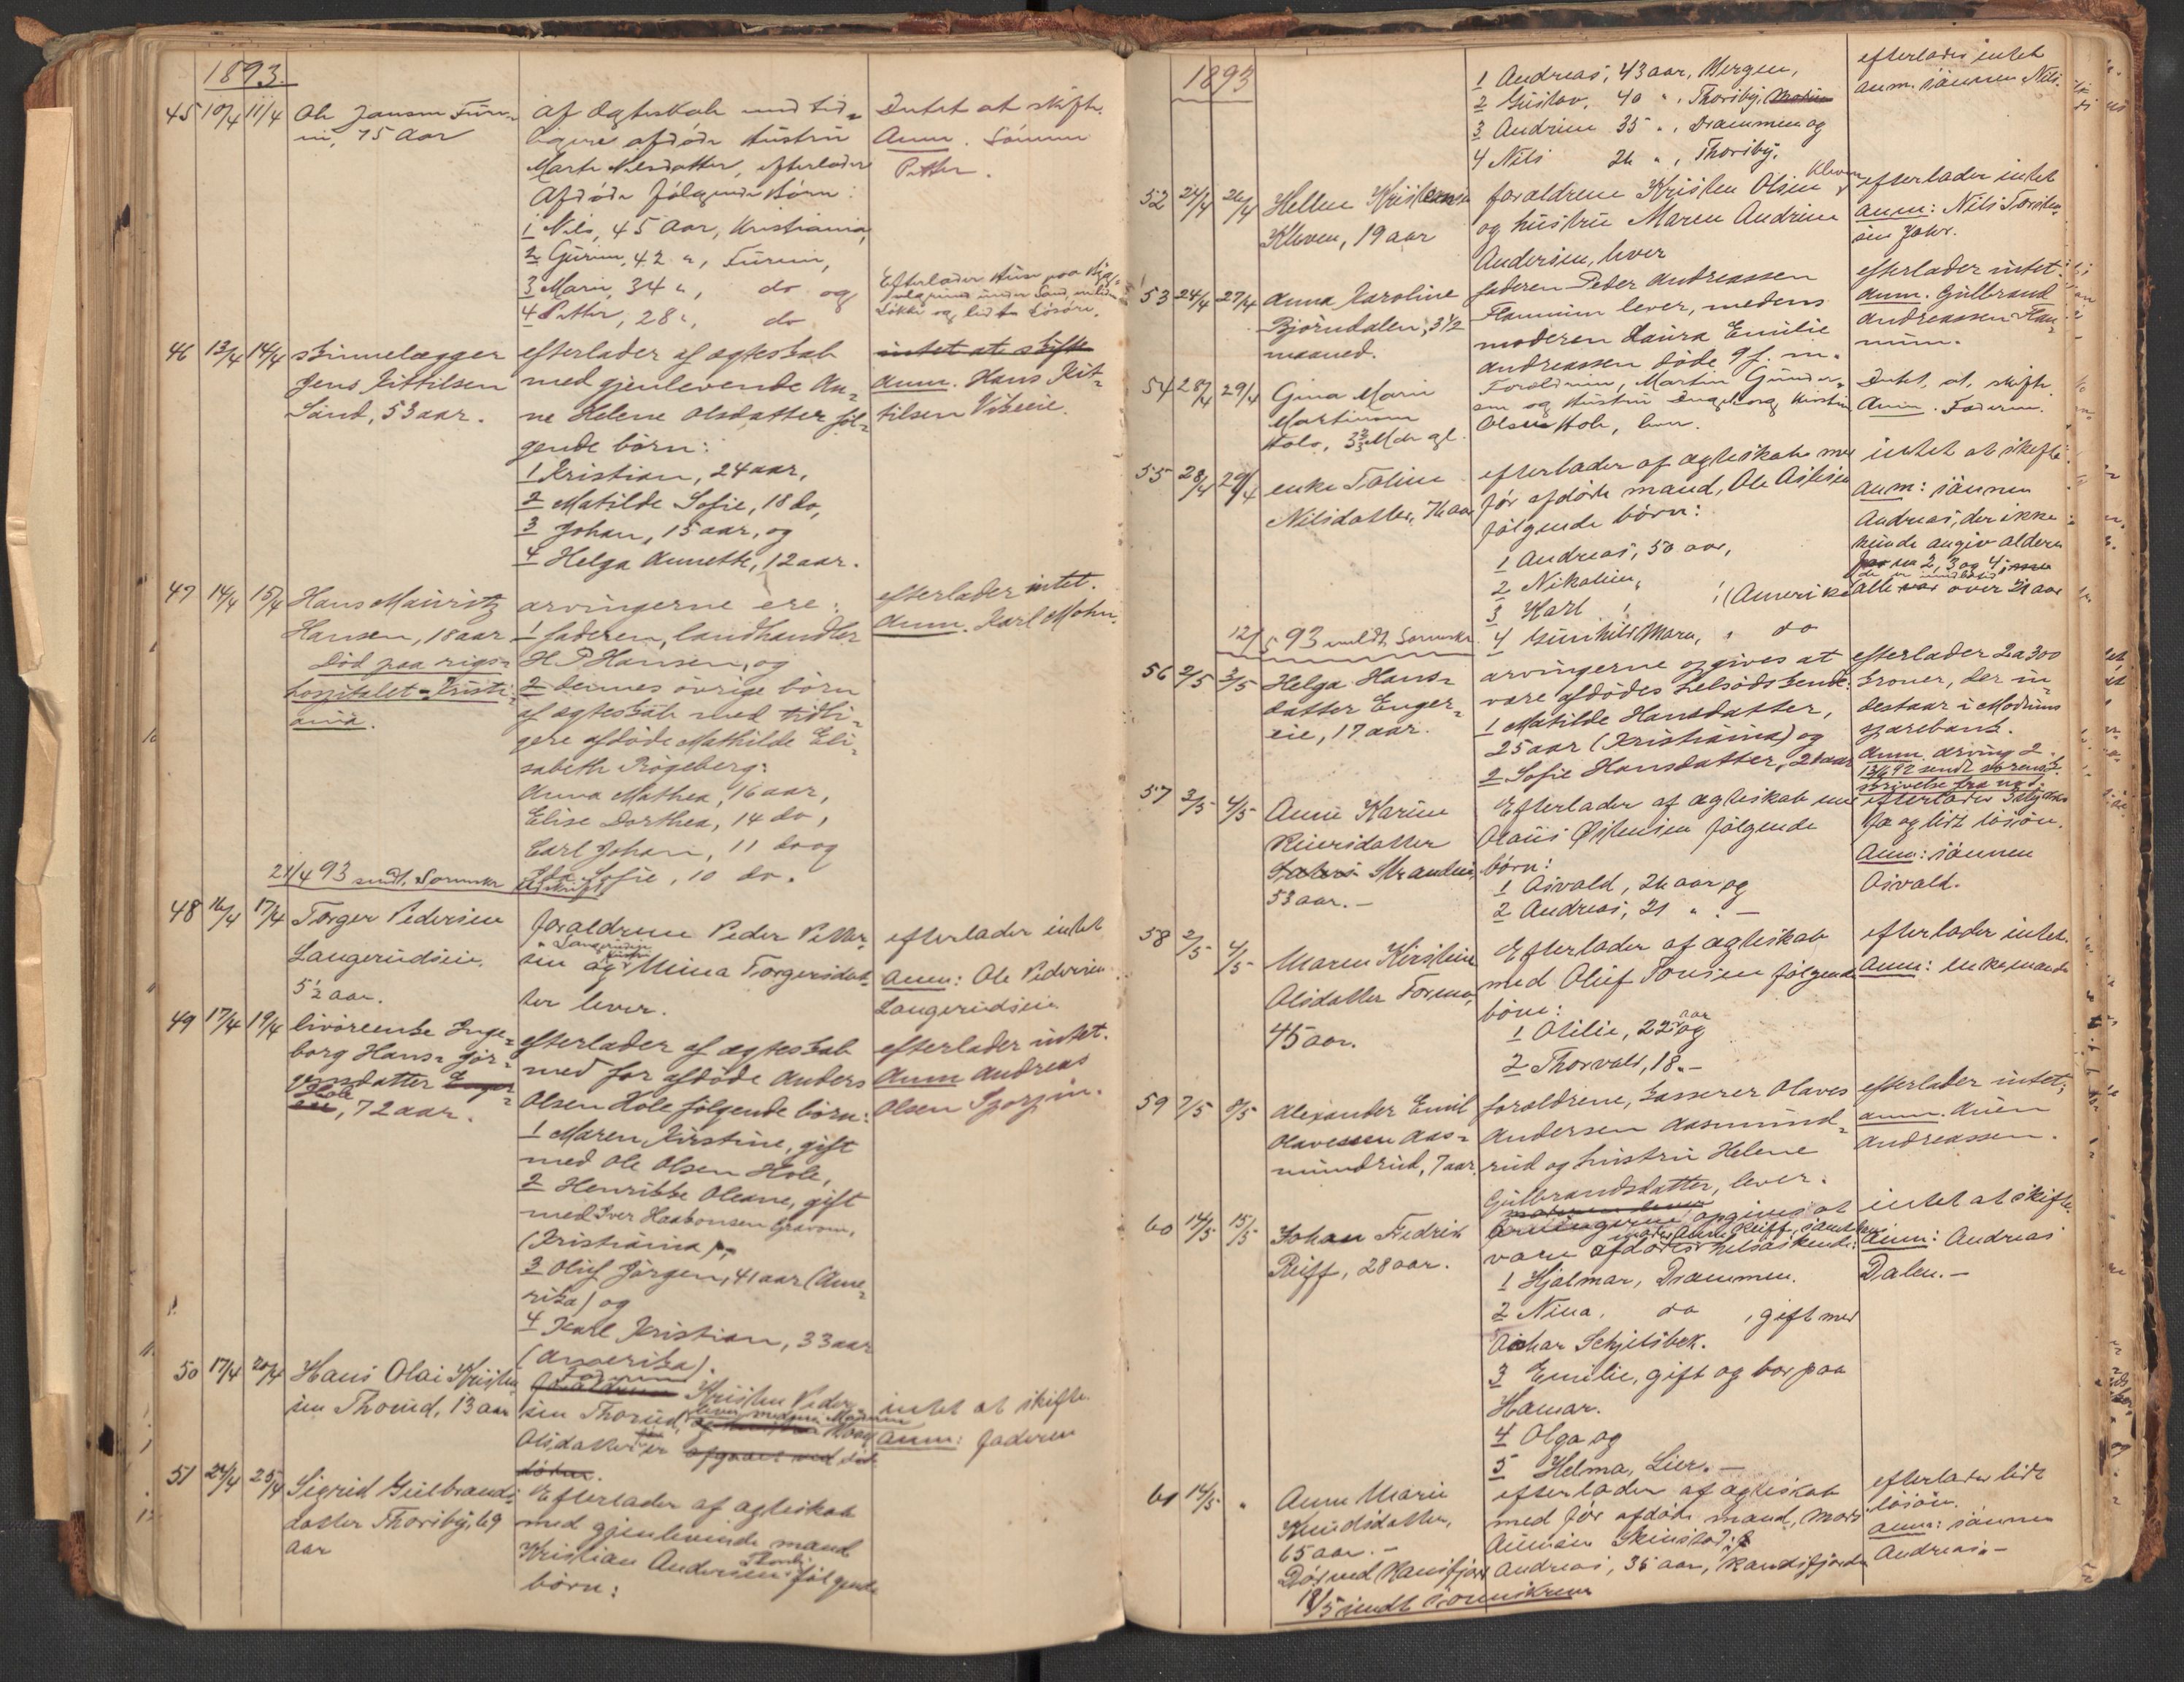 1893.
45 10/4 11/4
Ole Jansen Furu-
ni, 75 Aar
af Ægteskab med tid-
ligere afdøde Hustru
Marte Nilsdatter, efterlader
Afdøde følgende Børn:
1 Nils, 45 Aar, Kristiania,
2 Gurun, 42 ", Furuni,
3 Mari, 34 ", do og
4 Petter, 28 ", do
Intet at skifte.
Anm. Sønnen
Petter.
46 13/4 14/4
skinnelægger
Jens Kittilsen
Sand, 53 aar.
efterlader af ægteskab
med gjenlevende An-
ne Helene Olsdatter føl-
gende børn:
1 Kristian, 24 aar,
2 Matilde Sofie, 18 do,
3 Johan, 15 aar, og
4 Helga Annette, 12 aar.
Efterlader Huse paa
under Sand, en liden
Løkke og lidt Løsøre.
intet at skifte
Anm. Hans Kit-
tilsen Vikeeie.
47 14/4 15/4
Hans Mauritz
Hansen, 18 aar
Død paa rigs-
hospitalet - Kristi-
ania.
arvingerne ere:
1 faderen, landhandler
H. P. Hansen, og
2 dennes øvrige børn
af ægteskab med tidli-
gere afdøde Mathilde Eli-
sabeth Røgeberg:
Anna Mathea, 16 aar,
Elise Dorthea, 14 do,
Carl Johan, 11 do og
Ida Sofie, 10 do.
efterlader intet.
Anm. Karl Mohn.
21/4 93 sendt Sorenskr Udskrift
48 16/4 17/4
Torger Pedersen
Langerudseie.
5 1/2 aar.
foraldrene Peder Petter-
Langerudeie
sen og hustru Mina Torgersdat-
ter lever.
efterlader intet
Anm: Ole Pedersen
Langerudseie
49 17/4 19/4
livøreenke Inge-
borg Hans- Jør-
gensdatter Enger-
eie Hole, 72 aar.
efterlader af ægteskab
med før afdøde Anders
Olsen Hole følgende børn:
1 Maren Kirstine, gift
med Ole Olsen Hole,
2 Henrikke Oleane, gift
med Iver Haakonsen Gravom,
(Kristiania),
3 Oluf Jørgen, 41 aar (Ame-
rika) og
4 Karl Kristian, 33 aar
(Amerika).
efterlader intet.
Anm Andreas
Olsen
50 17/4 20/4
Hans Olai Kristen-
sen Thorud, 13 aar
Faderen
foraldrene Kristen Peder-
lever medens Moderen
sen Thorud, og hustru
Olsdatter er afgaaet ved dø-
døden.
intet at skifte
Anm: faderen
51 24/4 25/4
Sigrid Gulbrands-
datter Thorsby, 69
aar
Efterlader af ægteskab
med gjenlevende mand
Kristian Andersen Thorsby følgende
børn:
1893
1 Andreas, 43 aar, Bergen,
2 Gustav, 40 ", Thorsby,
3 Andrine 35 ", Drammen og
4 Nils 26 ", Thorsby.
efterlader intet
anm. sønnen Nils.
52 24/4 26/4
Hellen Kristensen
Kleven, 19 aar
foraldrene Kristen Olsen Kleven
og hustru Maren Andrine
Andersen, lever
efterlader intet
anm: Nils Torsten-
sen
53 24/4 27/4
Anna Karoline
Bjørndalen, 3 1/2
maaned.
faderen Peder Andreassen
Flannum lever, medens
moderen Laura Emilie
Andreassen døde 9 f. m.
efterlader intet.
anm. Gulbrand
Andreassen Flan-
num.
54 28/4 29/4
Gina Marie
Martinsen
Hole, 3 2/3 Mdr gl.
Foraldrene, Martin Gunder-
sen og Hustru Ingeborg Kirstine
Olsen Hole, lever.
Intet at skifte
Anm. Faderen.
55 28/4 29/4
enke Toline
Nilsdatter, 76 aar
efterlader af ægteskab med
før afdøde mand, Ole Aslesen
følgende børn:
1 Andreas, 50 aar,
2 Nikoline,
3 Karl, (Amerika
4 Gunhild Mare, do
intet at skifte.
anm: sønnen
Andreas, der ikke
kunde angive alderen
paa 2, 3 og 4,
alle over 21 aar
12/5 93 meldt Sorenskr.
56 2/5 3/5
Helga Hans-
datter Enger-
eie, 17 aar.
arvingerne opgives at
være afdødes helsødskende:
1 Matilde Hansdatter,
25 aar (Kristiania) og
2 Sofie Hansdatter, 21 aar
efterlader 2 a 300
kroner, der in-
destaar i Modums
sparebank.
Anm. arving 2.
57 3/5 4/5
Anne Karine
Reiersdatter
Strandeie,
53 aar. -
Efterlader af ægteskab med
Olaus Østensen følgende
børn:
1 Osvald, 26 aar og
2 Andreas, 21 ". -
efterlader
og lidt løsøre.
Anm: sønnen
Osvald.
58 2/5 4/5
Maren Kirstine
Olsdatter Formo,
45 aar.
Efterlader af ægteskab
med Oluf Tonsen følgende
børn:
1 Otilie, 22 aar og
2 Thorvald, 18. -
efterlader intet.
Anm: enkemanden
59 7/5 8/5
Alexander Emil
Olavessen Aas-
mundrud, 7 aar.
foraldrene, kasserer Olaves
Andersen Aasmund-
rud og hustru Helene
Gulbrandsdatter, lever.
efterlader intet;
anm. Auen
Andreassen.
60 14/5 15/5
Johan Fredrik
Reiff, 28 aar.
Arvingerne opgives at
være afdødes moder Anne Reiff, samt helsøskende:
1 Hjalmar, Drammen.
2 Nina, do, gift med
Oskar Schjelsbek.
3 Emilie, gift og bor paa
Hamar.
4 Olga og
5 Helma, Lier. -
intet at skifte.
Anm: Andreas
Dalen. -
61 14/5 "
Anne Marie
Knudsdatter,
65 aar. -
Død ved Randsfjord
efterlader af ægteskab
med før afdøde mand,
Skinstad:
Andreas, 35 aar, Randsfjorden
efterlader lidt
løsøre.
anm: sønnen
Andreas. -
18/5 sendt Sorenskriver